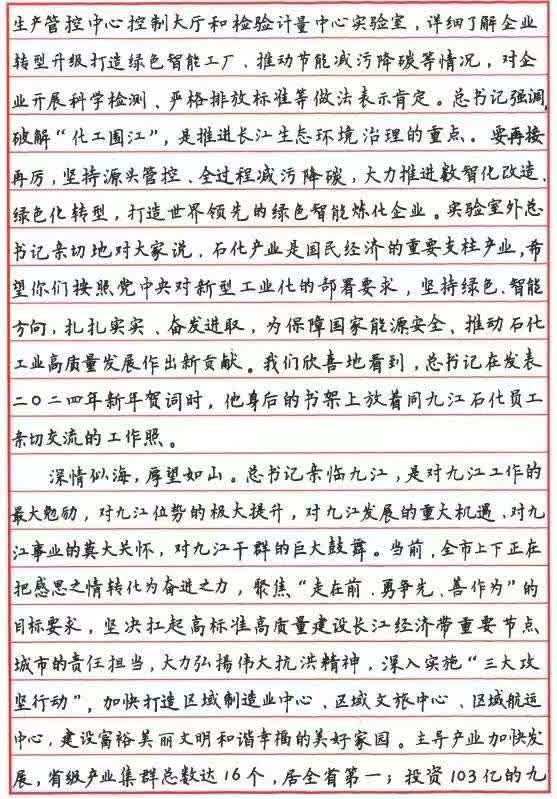 生产管控中心控制大厅和检验计量中心实验室，详细了解企业
转型升级打造绿色智能工厂、推动节能减污降碳等情况，对企
业开展科学检测、严格排放标准等做法表示肯定。总书记强调，
破解“化工围江”，是推进长江生态环境治理的重点。要再接
再厉，坚持源头管控、全过程减污降碳，大力推进数智化改造、
绿色化转型，打造世界领先的绿色智能炼化企业。实验室外总
书记亲切地对大家说，石化产业是国民经济的重要支柱产业，希
望你们按照党中央对新型工业化的部署要求，坚持绿色、智能
方向，扎扎实实、奋发进取，为保障国家能源安全、推动石化
工业高质量发展作出新贡献。我们欣喜地看到，总书记在发表
二〇二四年新年贺词时，他身后的书架上放着同九江石化员工
亲切交流的工作照。
深情似海，厚望如山。总书记亲临九江，是对九江工作的
最大勉励，对九江位势的极大提升，对九江发展的重大机遇、对九
江事业的莫大关怀，对九江干群的巨大鼓舞。当前，全市上下正在
把感恩之情转化为奋进之力，聚焦“走在前、勇争先、善作为”的
目标要求，坚决扛起高标准高质量建设长江经济带重要节点
城市的责任担当，大力弘扬伟大抗洪精神，深入实施“三大攻
坚行动”，加快打造区域制造业中心、区域文旅中心、区域航运
中心，建设富裕美丽文明和谐幸福的美好家园。主导产业加快发
展，省级产业集群总数达16个，居全省第一；投资103亿的九